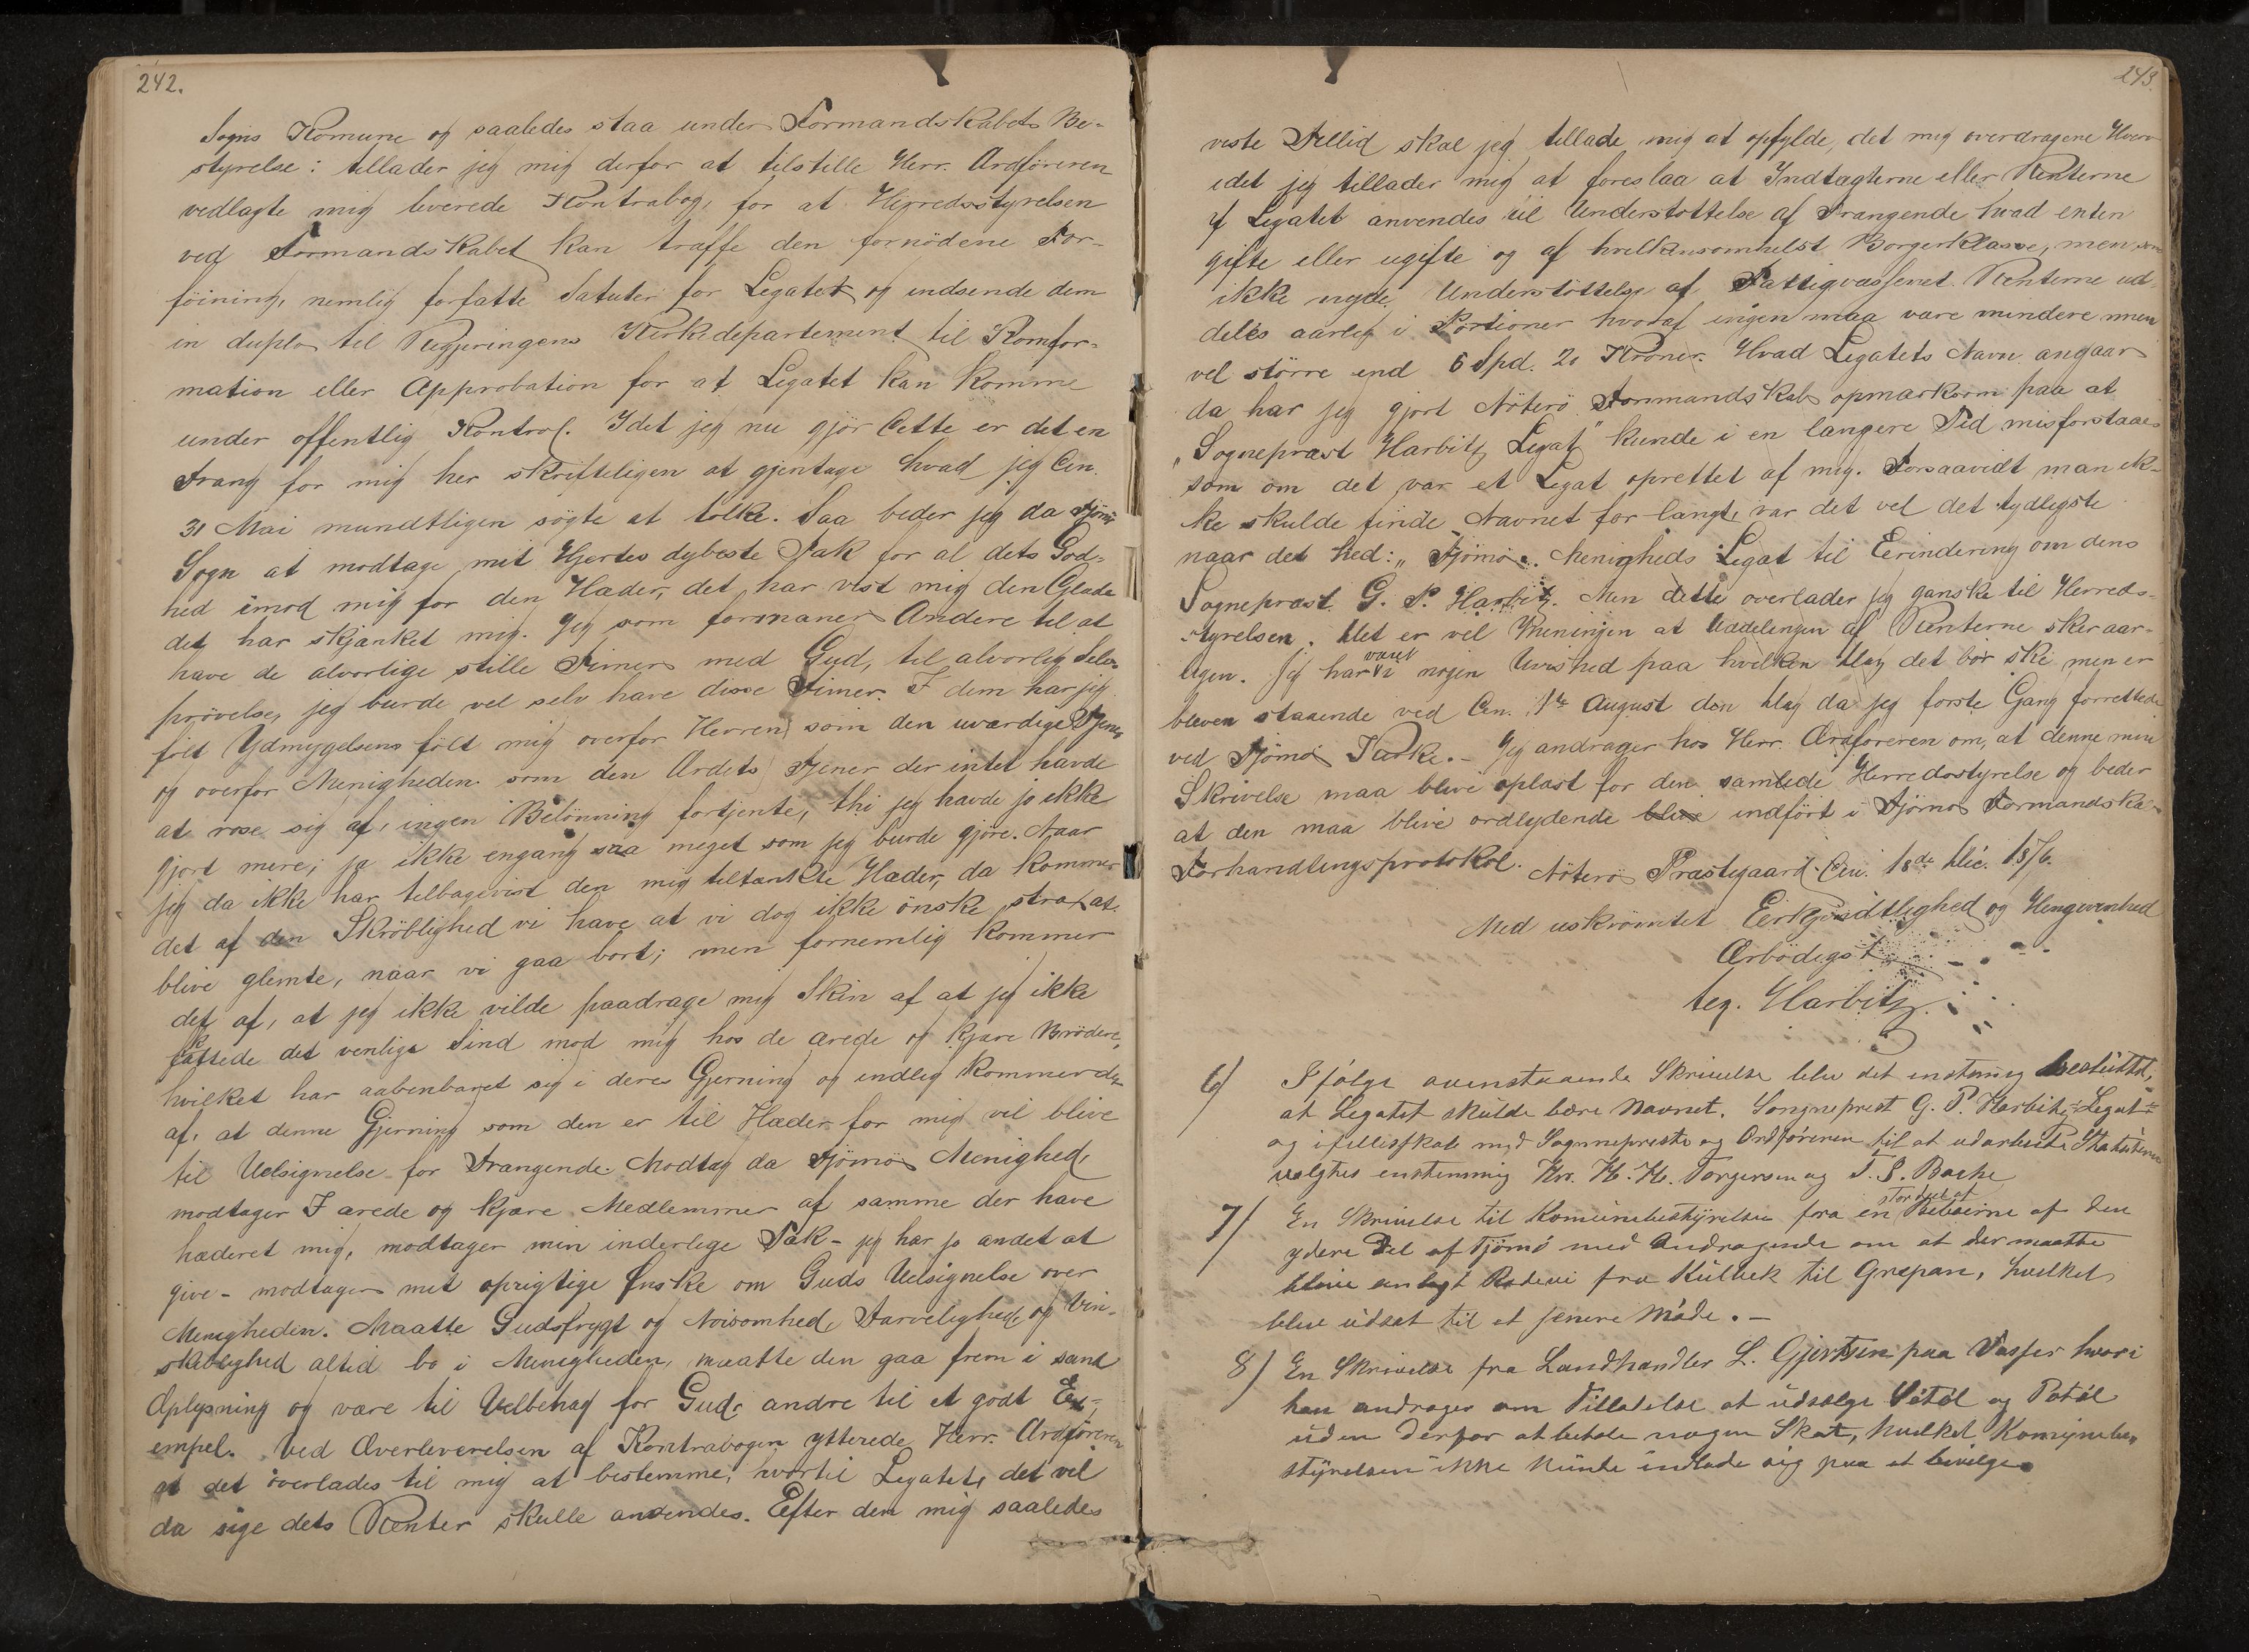 242.
Sogns Komune og saaledes staa under Formandskabets Be-
styrelse: tillader jeg mig derfor at tilstille Herr. Ordföreren
vedlagte mig leverede Kontrabog, for at Herredsstyrelsen
ved Formandskabet kan træffe den fornödene For-
föining, nemlig forfatte Satuter for Legatet og indsende dem
in duplo til Regjeringens Kirkedepartement til Komfor-
mation eller Approbation for at Legatet kan komme
under offentlig Kontrol. Idet jeg nu gjör Dette er det en
Trang for mig her skrifteligen at gjentage hvad jeg Den
31 Mai mundtligen sögte at tolke. Saa beder jeg da Tjömö
Sogn at modtage mit Hjertes dybeste Tak for al dets God-
hed imod mig for den Hæder, det har vist mig den Glæde
det har skjænket mig. Jeg som formaner Andere til at
have de alvorlige stille Timer med Gud, til alvorlig Selv-
prövelse, jeg burde vel selv have disse Timer. I dem har jeg
fölt Ydmygelsens fölt mig overfor Herren som den uværdige Tjener
og overfor Menigheden som den Ordets Tjener der intet havde
at rose sig af, ingen Belönning fortjente, thi jeg havde jo ikke
gjort mere; ja ikke engang saa meget som jeg burde gjöre. Naar
jeg da ikke har tilbagevist den mig tiltænkte Hæder, da kommer
det af den Skröblighed vi have at vi dog ikke önske strax at
blive glemte, naar vi gaa bort; men fornemlig kommer
det af, at jeg ikke vilde paadrage mig Skin af at jeg ikke
det venlige Sind mod mig hos de ærede og kjære Brödere,
hvilket har aabenbaret sig i deres Gjerning og endlig kommer det
af, at denne Gjerning som den er til Hæder for mig vil blive
til Velsignelse for Trængende. Modtag da Tjömös Menighed,
modtager I ærede og kjære Medlemmer af samme der have
hæderet mig, modtager min inderlege Tak – jeg har jo andet at
give – modtager mit oprigtige Önske om Guds Velsignelse over
Menigheden. Maatte Gudsfrygt og Noisomhed, Tarvelighed og Vin-
skibelighed altid bo i Menigheden, maatte den gaa frem i sand
Oplysning og være til Velbehag for Gud, andre til et godt Ex-
empel. Ved Overleverelsen af Kontrabogen ytterede Herr. Ordföreren
at det overlades til mig at bestemme, hvortil Legatet, det vil
da sige dets Renter skulle anvendes. Efter den mig saaledes
243.
viste Tillid skal jeg tillade mig at opfylde, det mig overdragene Hverv
idet jeg tillader mig at foreslaa at Indtægterne eller Renterne
af Legatet anvendes til Understottelse af Trængende hvad enten
gifte eller ugifte og af hvilkensomhelst Borgerklasse, men som
ikke nyde Understöttelse af Fattigvæssenet. Renterne ud-
deles aarlig i Portioner hvoraf ingen maa være mindere men
vel större end 6 Spd. 20 Kroner. Hvad Legatets Navn angaar
da har jeg gjort Nöterö Formandskab opmærksom paa at
„Sognepræst Harbitz Legat" kunde i en længere Tid misforstaaes
som om det var et Legat oprettet af mig. Forsaavidt man ik-
ke skulde finde Navnet for langt, var det vel det tydligste
naar det hed: „Tjömös Menigheds Legat til Eerindering om dens
Sogneprast G. P. Harbitz. Men dette overlader jeg ganske til Herreds-
styrelsen. Det er vel Meningen at Uddelingen af Renterne sker aar-
ligen. Jeg har været i nogen Uvished paa hvilken Dag det bör ske, men er
bleven staaende ved Den 1ste August den Dag da jeg forste Gang forrettede
ved Tjömös Kirke. – Jeg andrager hos Herr. Ordföreren om, at denne min
Skrivelse maa blive oplæst for den samlede Herredsstyrelse og beder
at den maa blive ordlydende blive indfört i Tjömös Formandskabs
Forhandlingsprotokol. Nöterö Præstegaard Den. 18de Dec. 1876.
Med uskrömtet Eerkjendtlighed og Hengivenhed
Ærbödigst
teg. Harbitz.
6) Ifölge ovenstaaende Skrivelse blev det enstemig besluttet,
at Legatet skulde bære Navnet. Songneprest G. P. Harbitz Legat
og i fellesskab med Sognepresten og Ordföreren til at udarbeide Statuterne
valgtes enstemmig Hr. H. H. Torgersen og T. S. Bache
7) En Skrivelse til Komunebestyrelsen fra en stor deel af Beboerne af den
ydere Del af Tjömö med Andragende om at der maatte
blive anlagt Rodevei fra Kulbek til Grepan, hvilket
blev udsat til et senere Möde. –
8) En Skrivelse fra Landhandler L. Gjertsen paa Vasser hvori
han andrager om Tilladelse at udsælge Sötöl og Potöl
uden derfor at betale nogen Skat, hvilket Komunebe-
styrelsen ikke kunde indlade sig paa at bevilge.